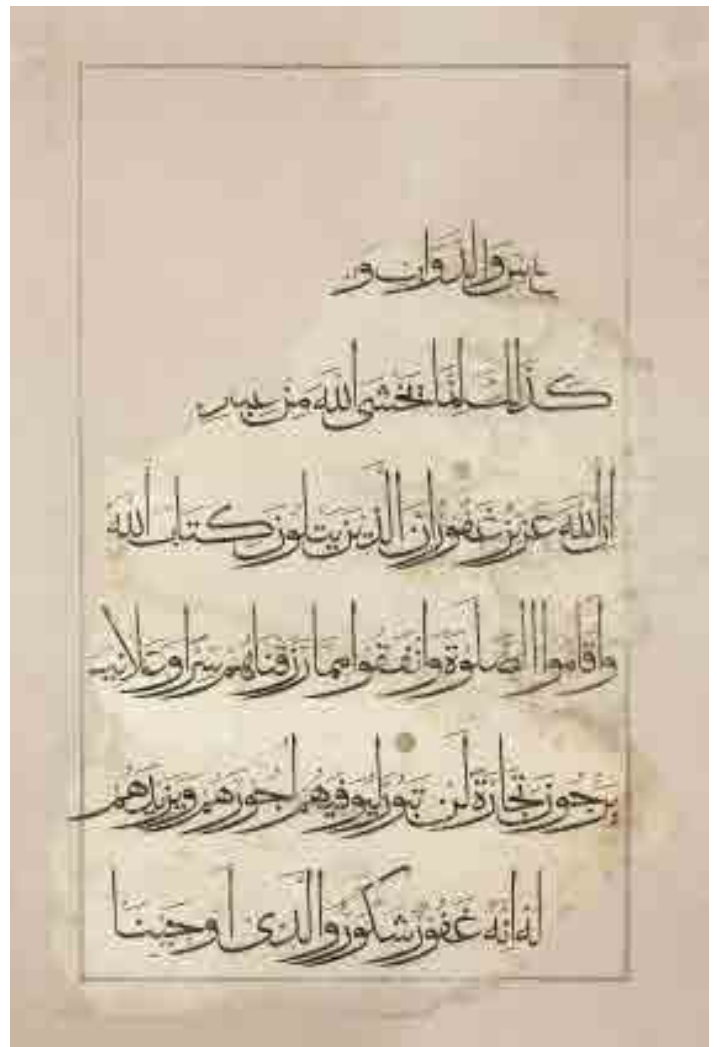 والدواب و
كذلك انما يخشى الله من
ان الله عزيز غفور ان الذين يتلون كتاب الله
واقاموا الصلوة وانفقوا مما رزقناهم سرا وعلانيـ
يرجون تجارة لن تبور ليوفيهم اجورهم ويزيدهم
له انه غفور شكور والذى اوحينا